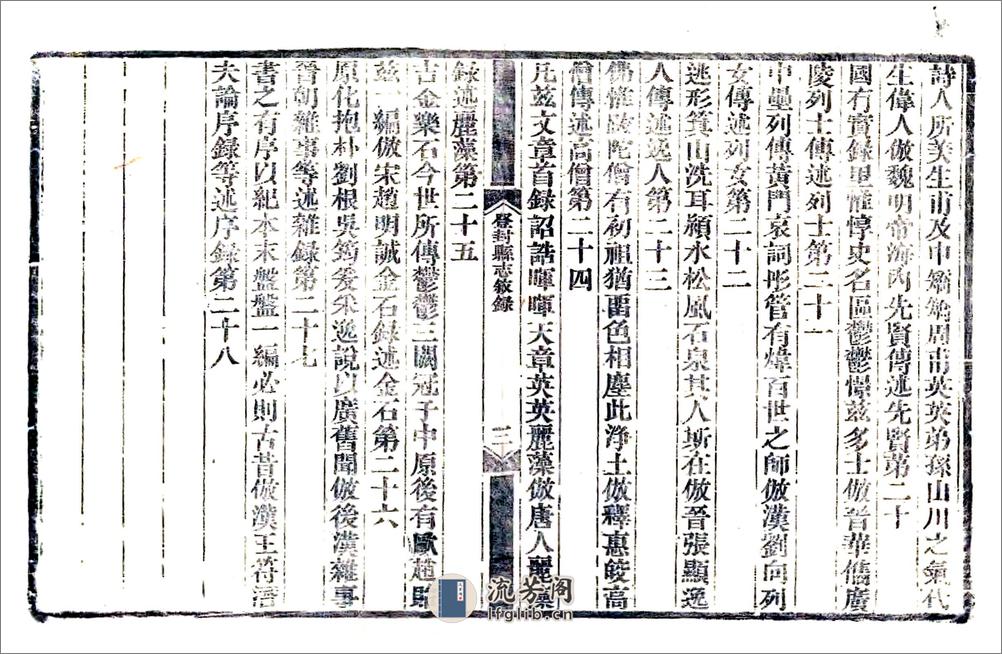 詩人所美生甫及申矯矯周甫英英弟孫山川之氣代
生偉人倣魏明帝海內先賢傳述先賢第二十
國有實錄里惟惇史名區鬱鬱憬茲多士倣晉華儁廣
陵列士傳述列士第二十一
中壘列傳黃門哀詞彤管有煒百世之師倣漢劉向列
女傳述列女第二十二
逃形箕山洗耳潁水松風石泉其人斯在倣晉張顯逸
人傳述逸人第二十三
佛惟陀僧有初祖猶留色相塵此淨土倣釋惠皎高
僧傳述高僧第二十四
凡茲文章首録詔誥暉暉天章英英麗藻倣唐人麗藻
登封縣志敘録
三
録述麗藻第二十五
吉金樂石今世所傳鬱鬱三闕冠于中原後有歐趙
茲一編倣宋趙明誠金石録述金石第二十六
原化抱朴劉根吳筠爰采逸說以廣舊聞倣後漢雜事
晉朝雜事等述雜録第二十七
書之有序以紀本末盤盤一編必則古昔倣漢王符潛
夫論序録等述序録第二十八
流芳阁
lfglib.cn